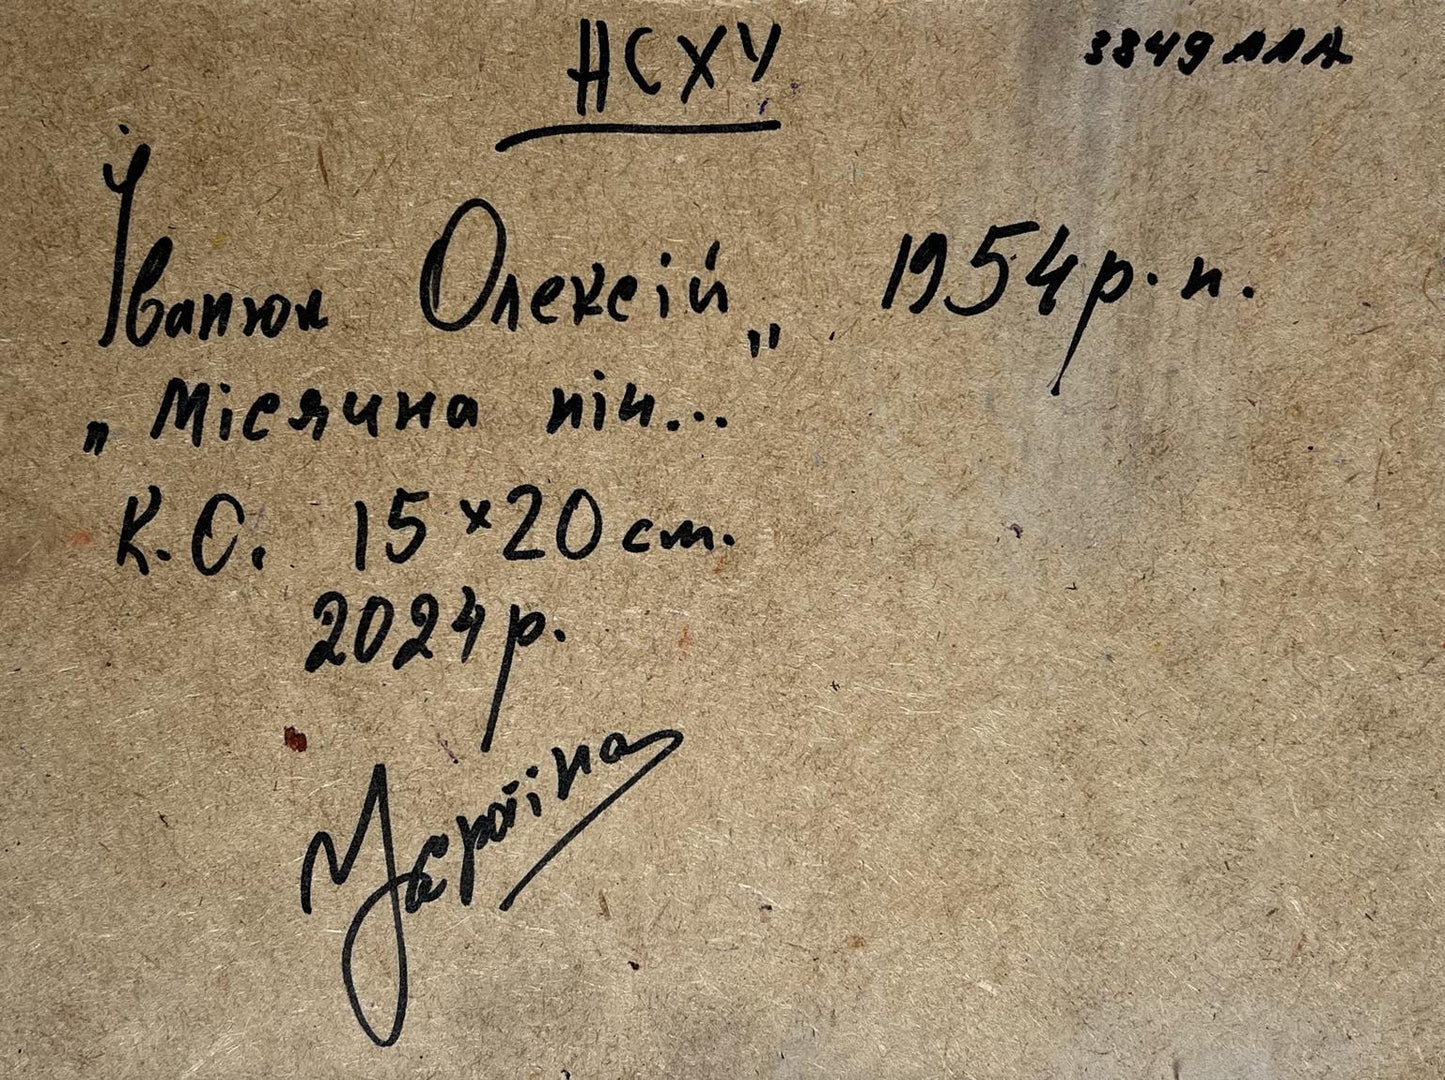 НСХУ
3849 ААА
Іванюк Олексій 1954 р. н.
„Місячна ніч..."
К.О. 15×20 см.
2024 р.
Україна